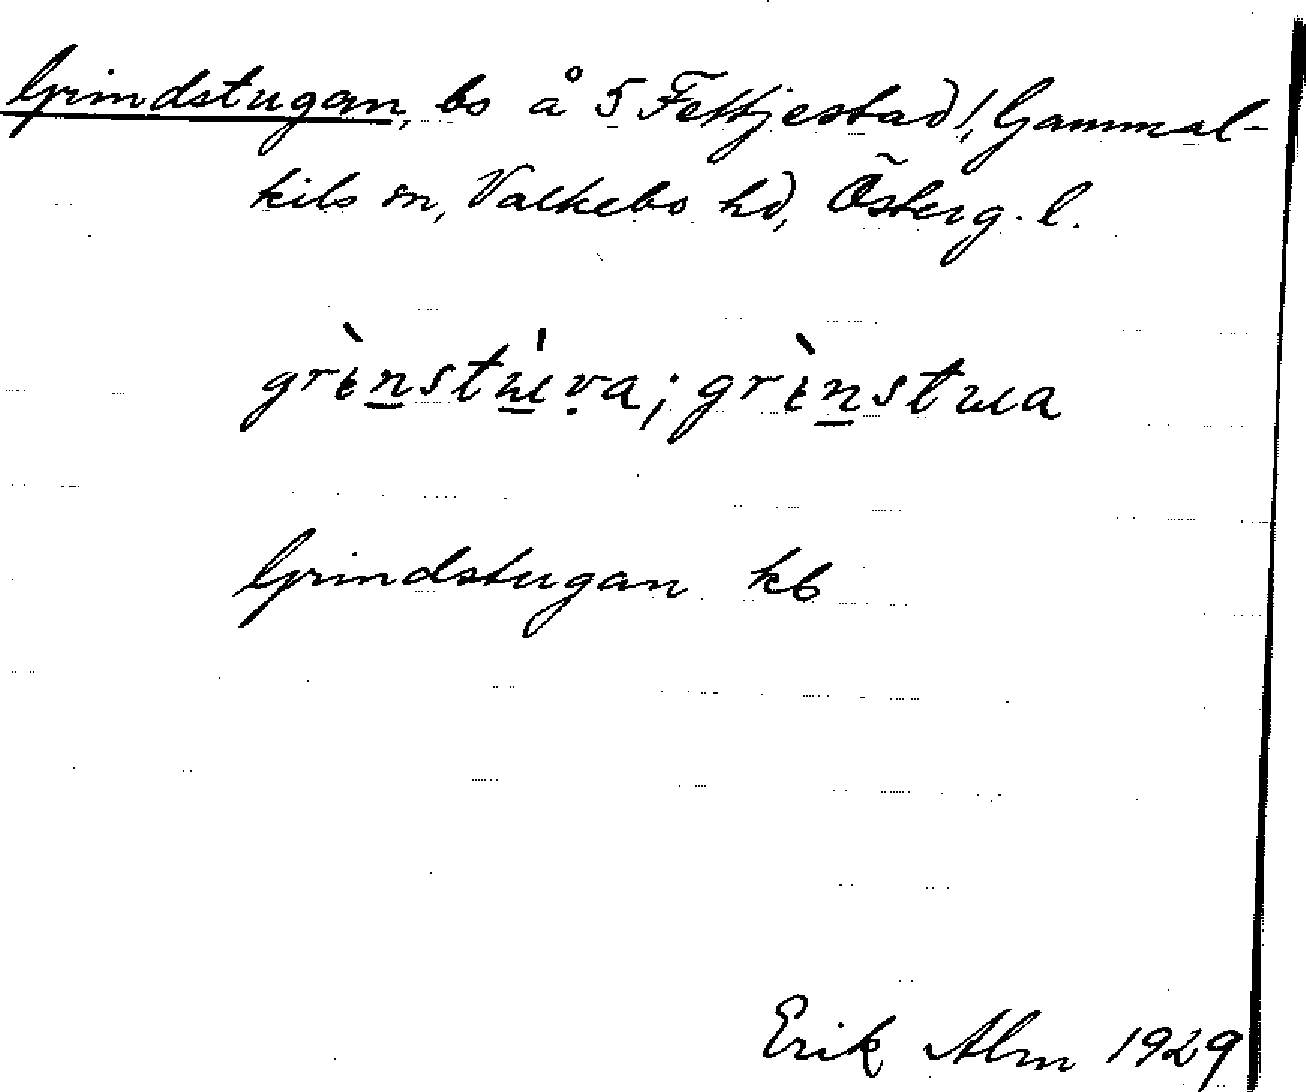 Grindstugan, bs å 5 Fettjestad!, Gammal-
kils sn, Valkebo hd, Österg. l.
grìnstu̇va; grìnstua
Grindstugan kb
Erik Alm 1929